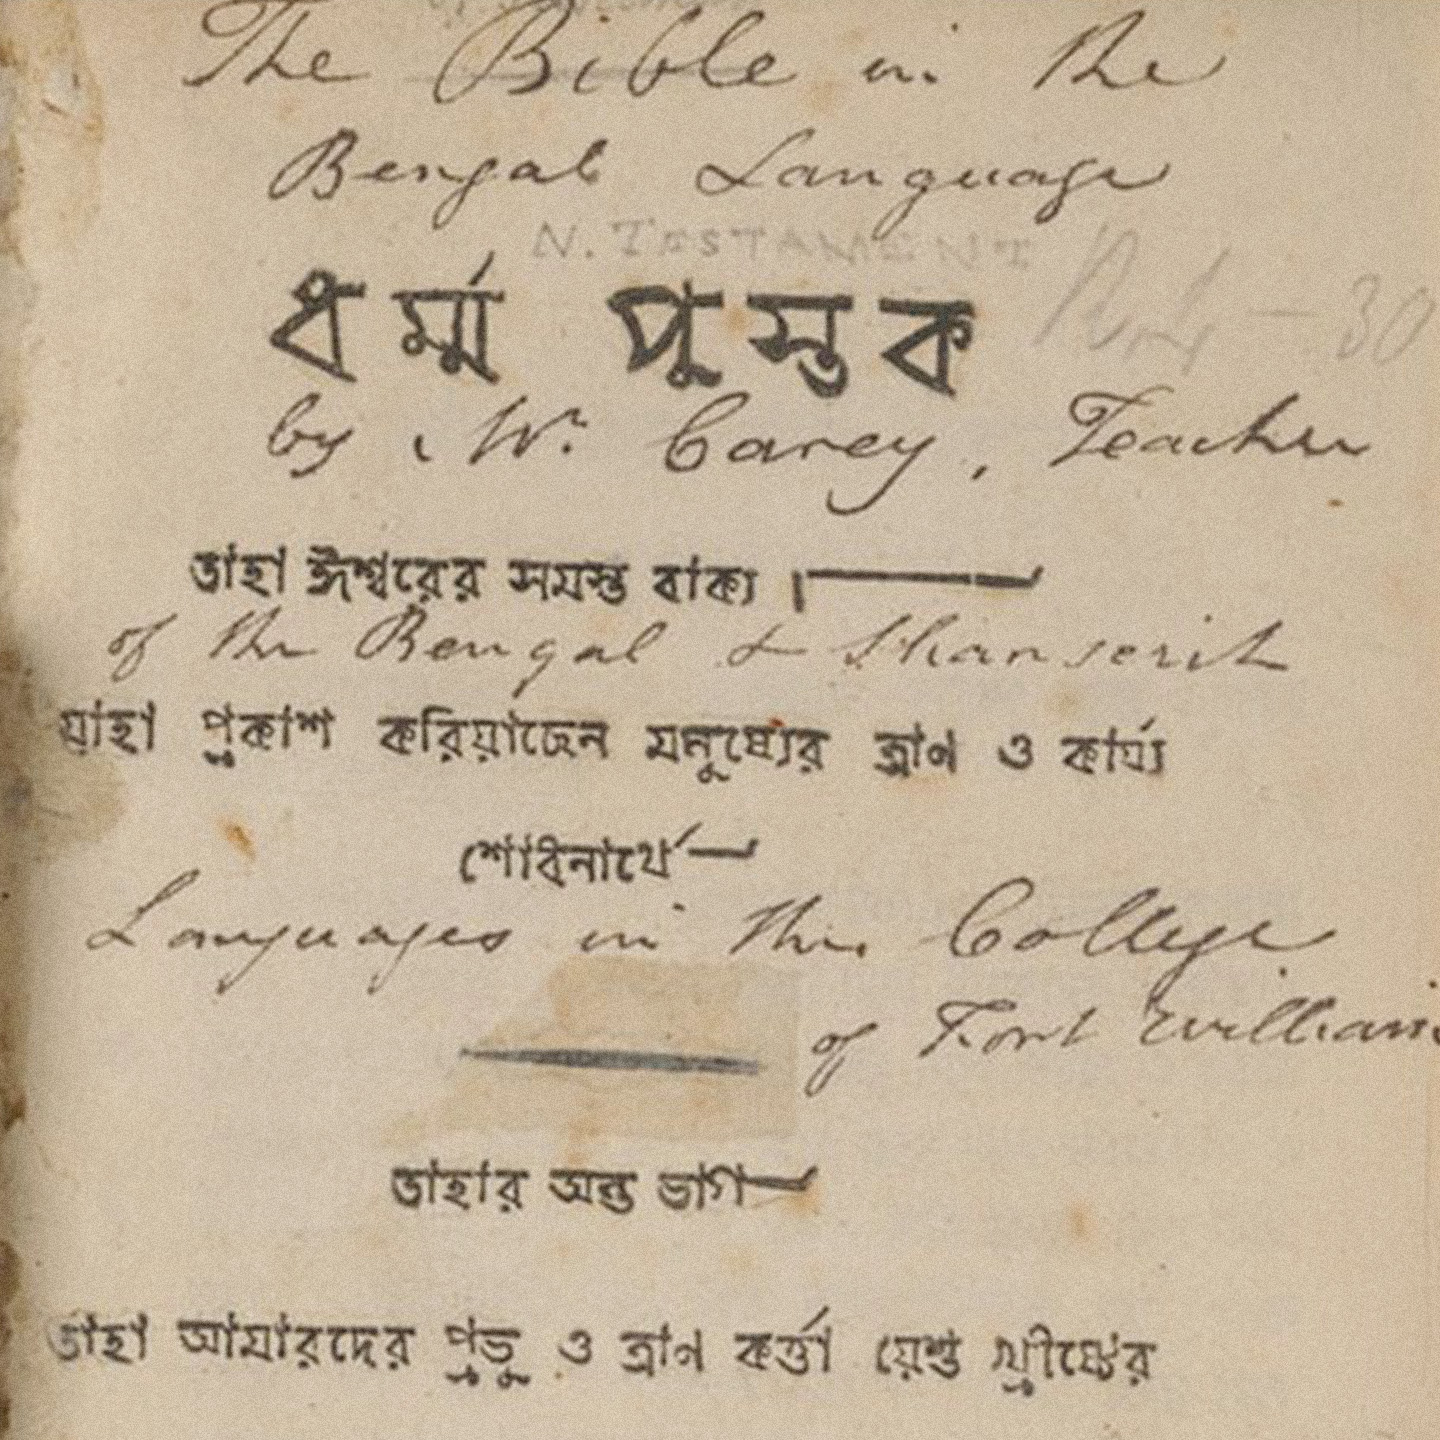 The Bible in the
Bengal Language
N. TESTAMENT
ধর্ম্ম পুস্তক
by W. Carey, Teacher
তাহা ঈশ্বরের সমস্ত বাক্য।
of the Bengal & Shanscrit
যাহা প্রকাশ করিয়াছেন মনুষ্যের ত্রাণ ও কার্য্য
শোধনার্থে
Languages in the College
of Fort William
তাহার অন্ত ভাগ
তাহা আমারদের প্রভু ও ত্রাণ কর্ত্তা য়েশু খ্রীষ্টের